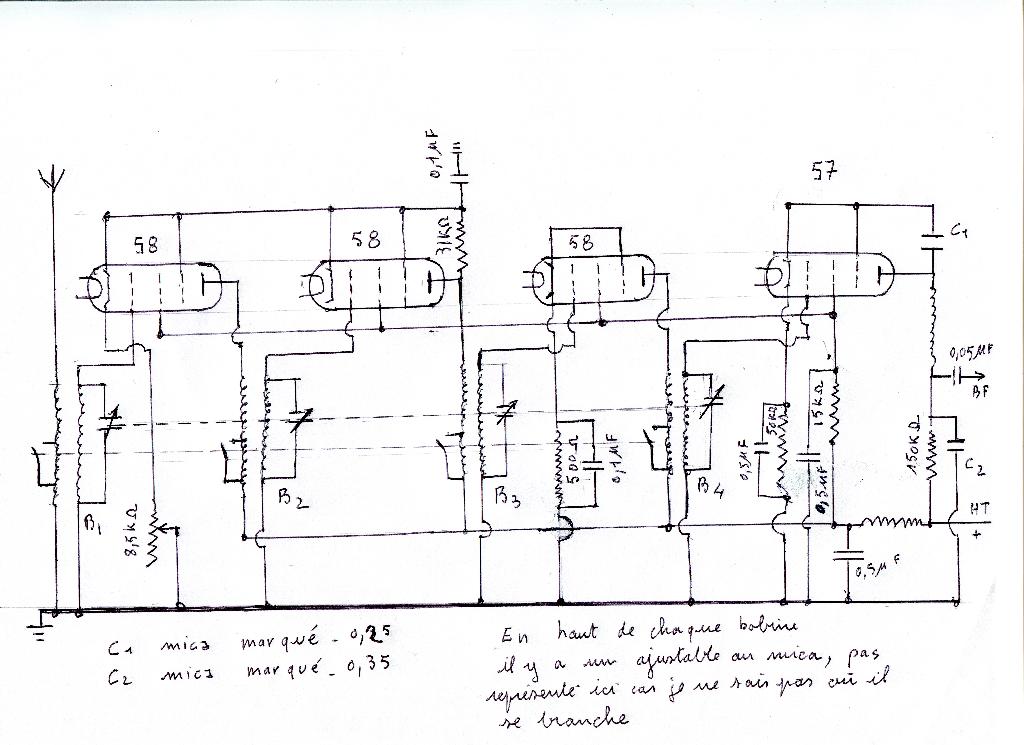 57
0,1µF
58
58
31KΩ
58
C1
0,05µF
BF
8,5KΩ
B1
B2
B3
500Ω
0,1µF
B4
0,5µF
50KΩ
15KΩ
0,5µF
150KΩ
C2
HT
+
0,5µF
C1 mica marqué - 0,25
C2 mica marqué - 0,35
En haut de chaque bobine
il y a un ajustable au mica, pas
représenté ici car je ne sais pas où il
se branche